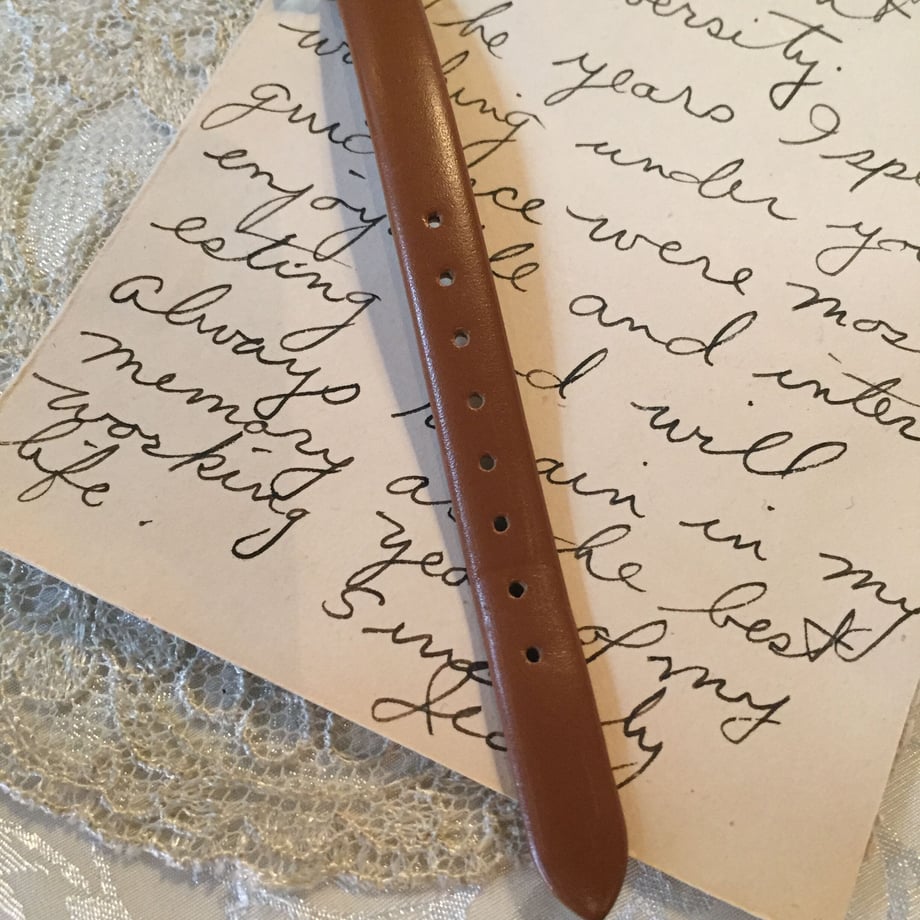 ersity.
The years I spe
working under yo
guidance were mos
enjoyable and inter
esting and will
always remain in my
memory as the best
working years of my
life.
Sincerely